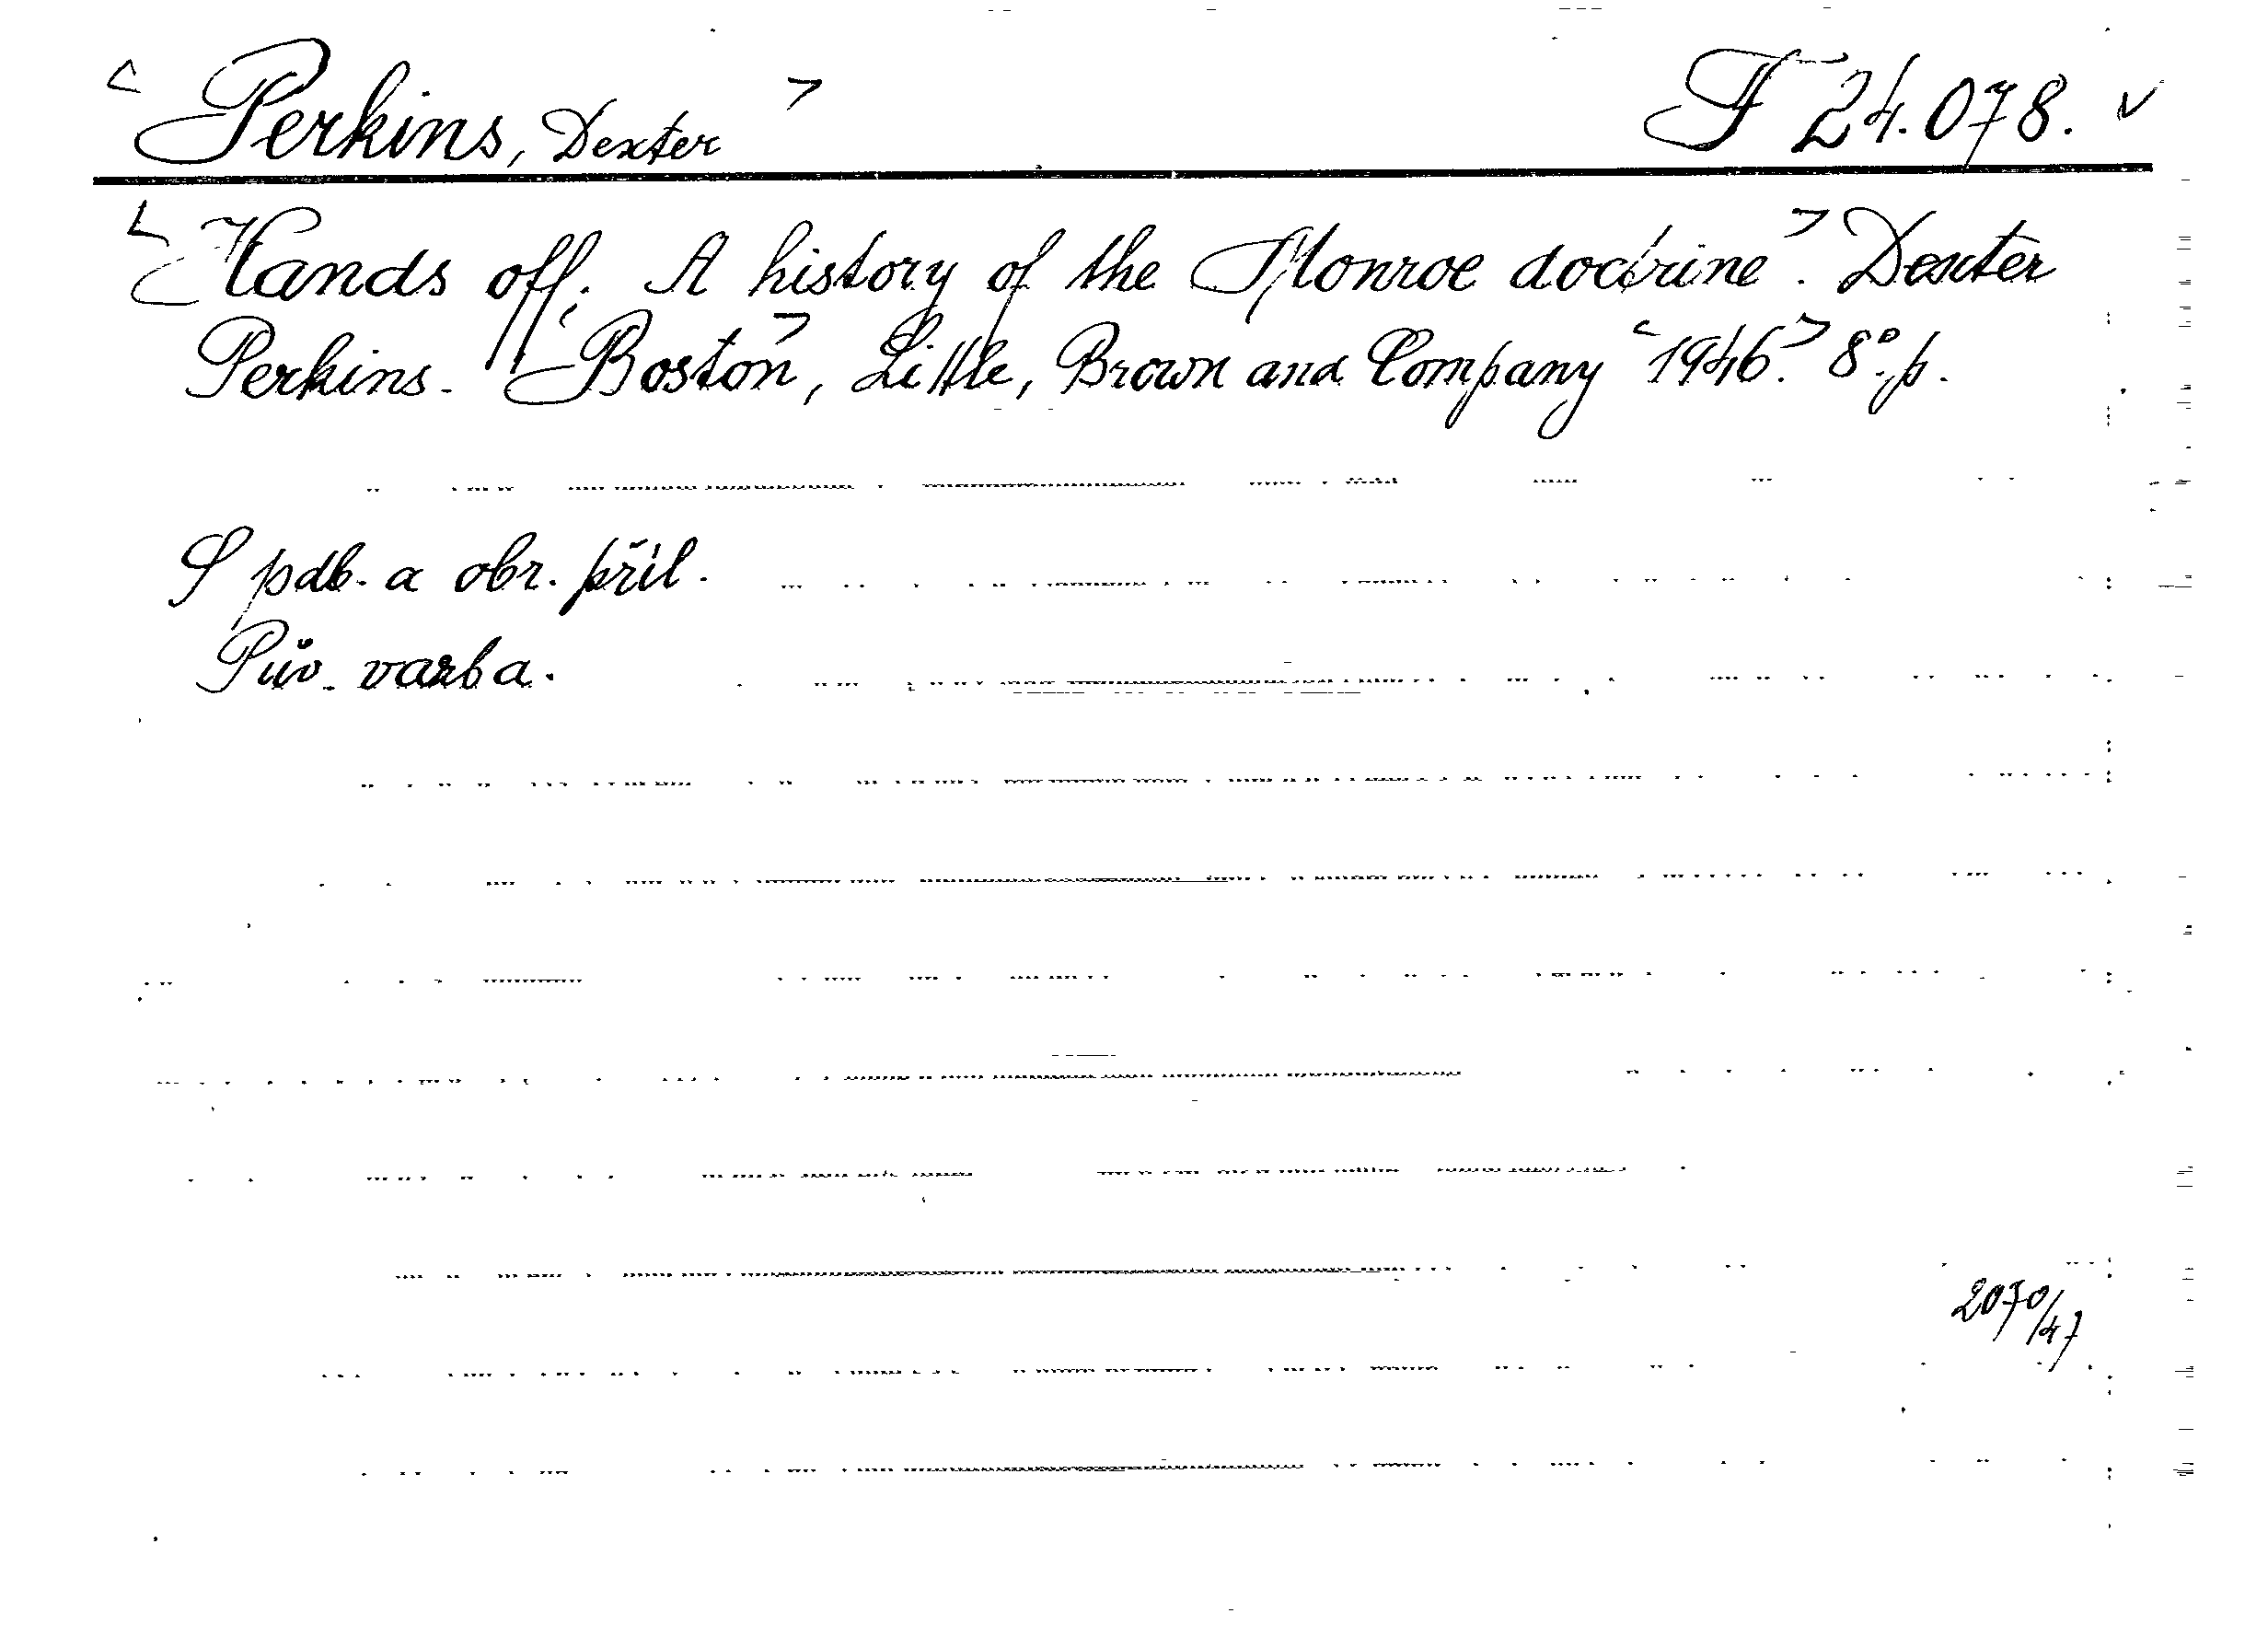 < Perkins, Dexter > F 24.078. v
< Hands off. A history of the Monroe doctrine >. Dexter
Perkins. < Boston >, Little, Brown and Company < 1946. > 8°. p.
S pdb. a obr. příl.
Pův. vazba.
2070/47